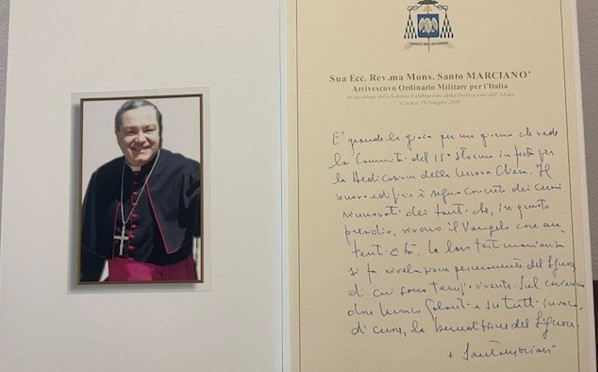 Sua Ecc. Rev.ma Mons. Santo MARCIANO'
Arcivescovo Ordinario Militare per l'Italia
in occasione della Solenne Celebrazione della Dedicazione dell'Altare
Cervia, 19 Giugno 2018
E' grande la gioia per un giorno che vede
la Comunità del 15° Stormo in festa per
la Dedicazione della nuova Chiesa. Il
nuovo edificio è segno concreto dei cuori
rinnovati dei tanti che, in questo
presidio, vivono il Vangelo con au-
tenticità. La loro testimonianza
si fa rivelazione permanente del Signore
di cui sono tempio vivente. Sul carissimo
don Marco e su tutti invoco
di cuore, la benedizione del Signore.
+ Santo Marcianò